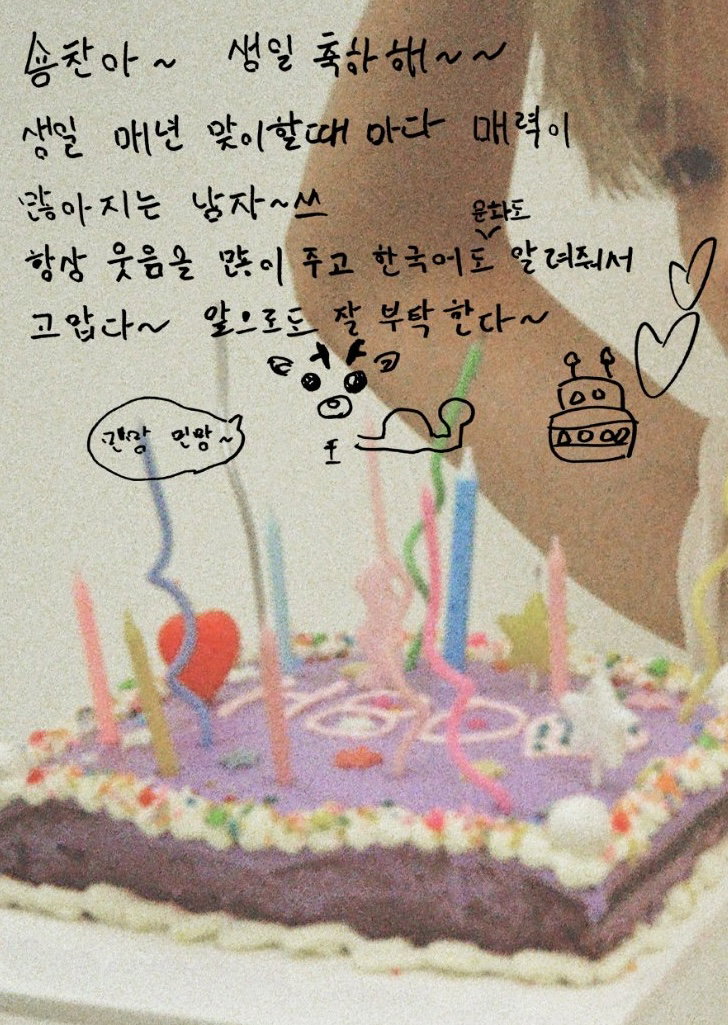 숭찬아~ 생일 축하해~~
생일 매년 맞이할때 마다 매력이
많아지는 남자~쓰
문화도
항상 웃음을 많이 주고 한국어도 알려줘서
고맙다~ 앞으로도 잘 부탁한다~